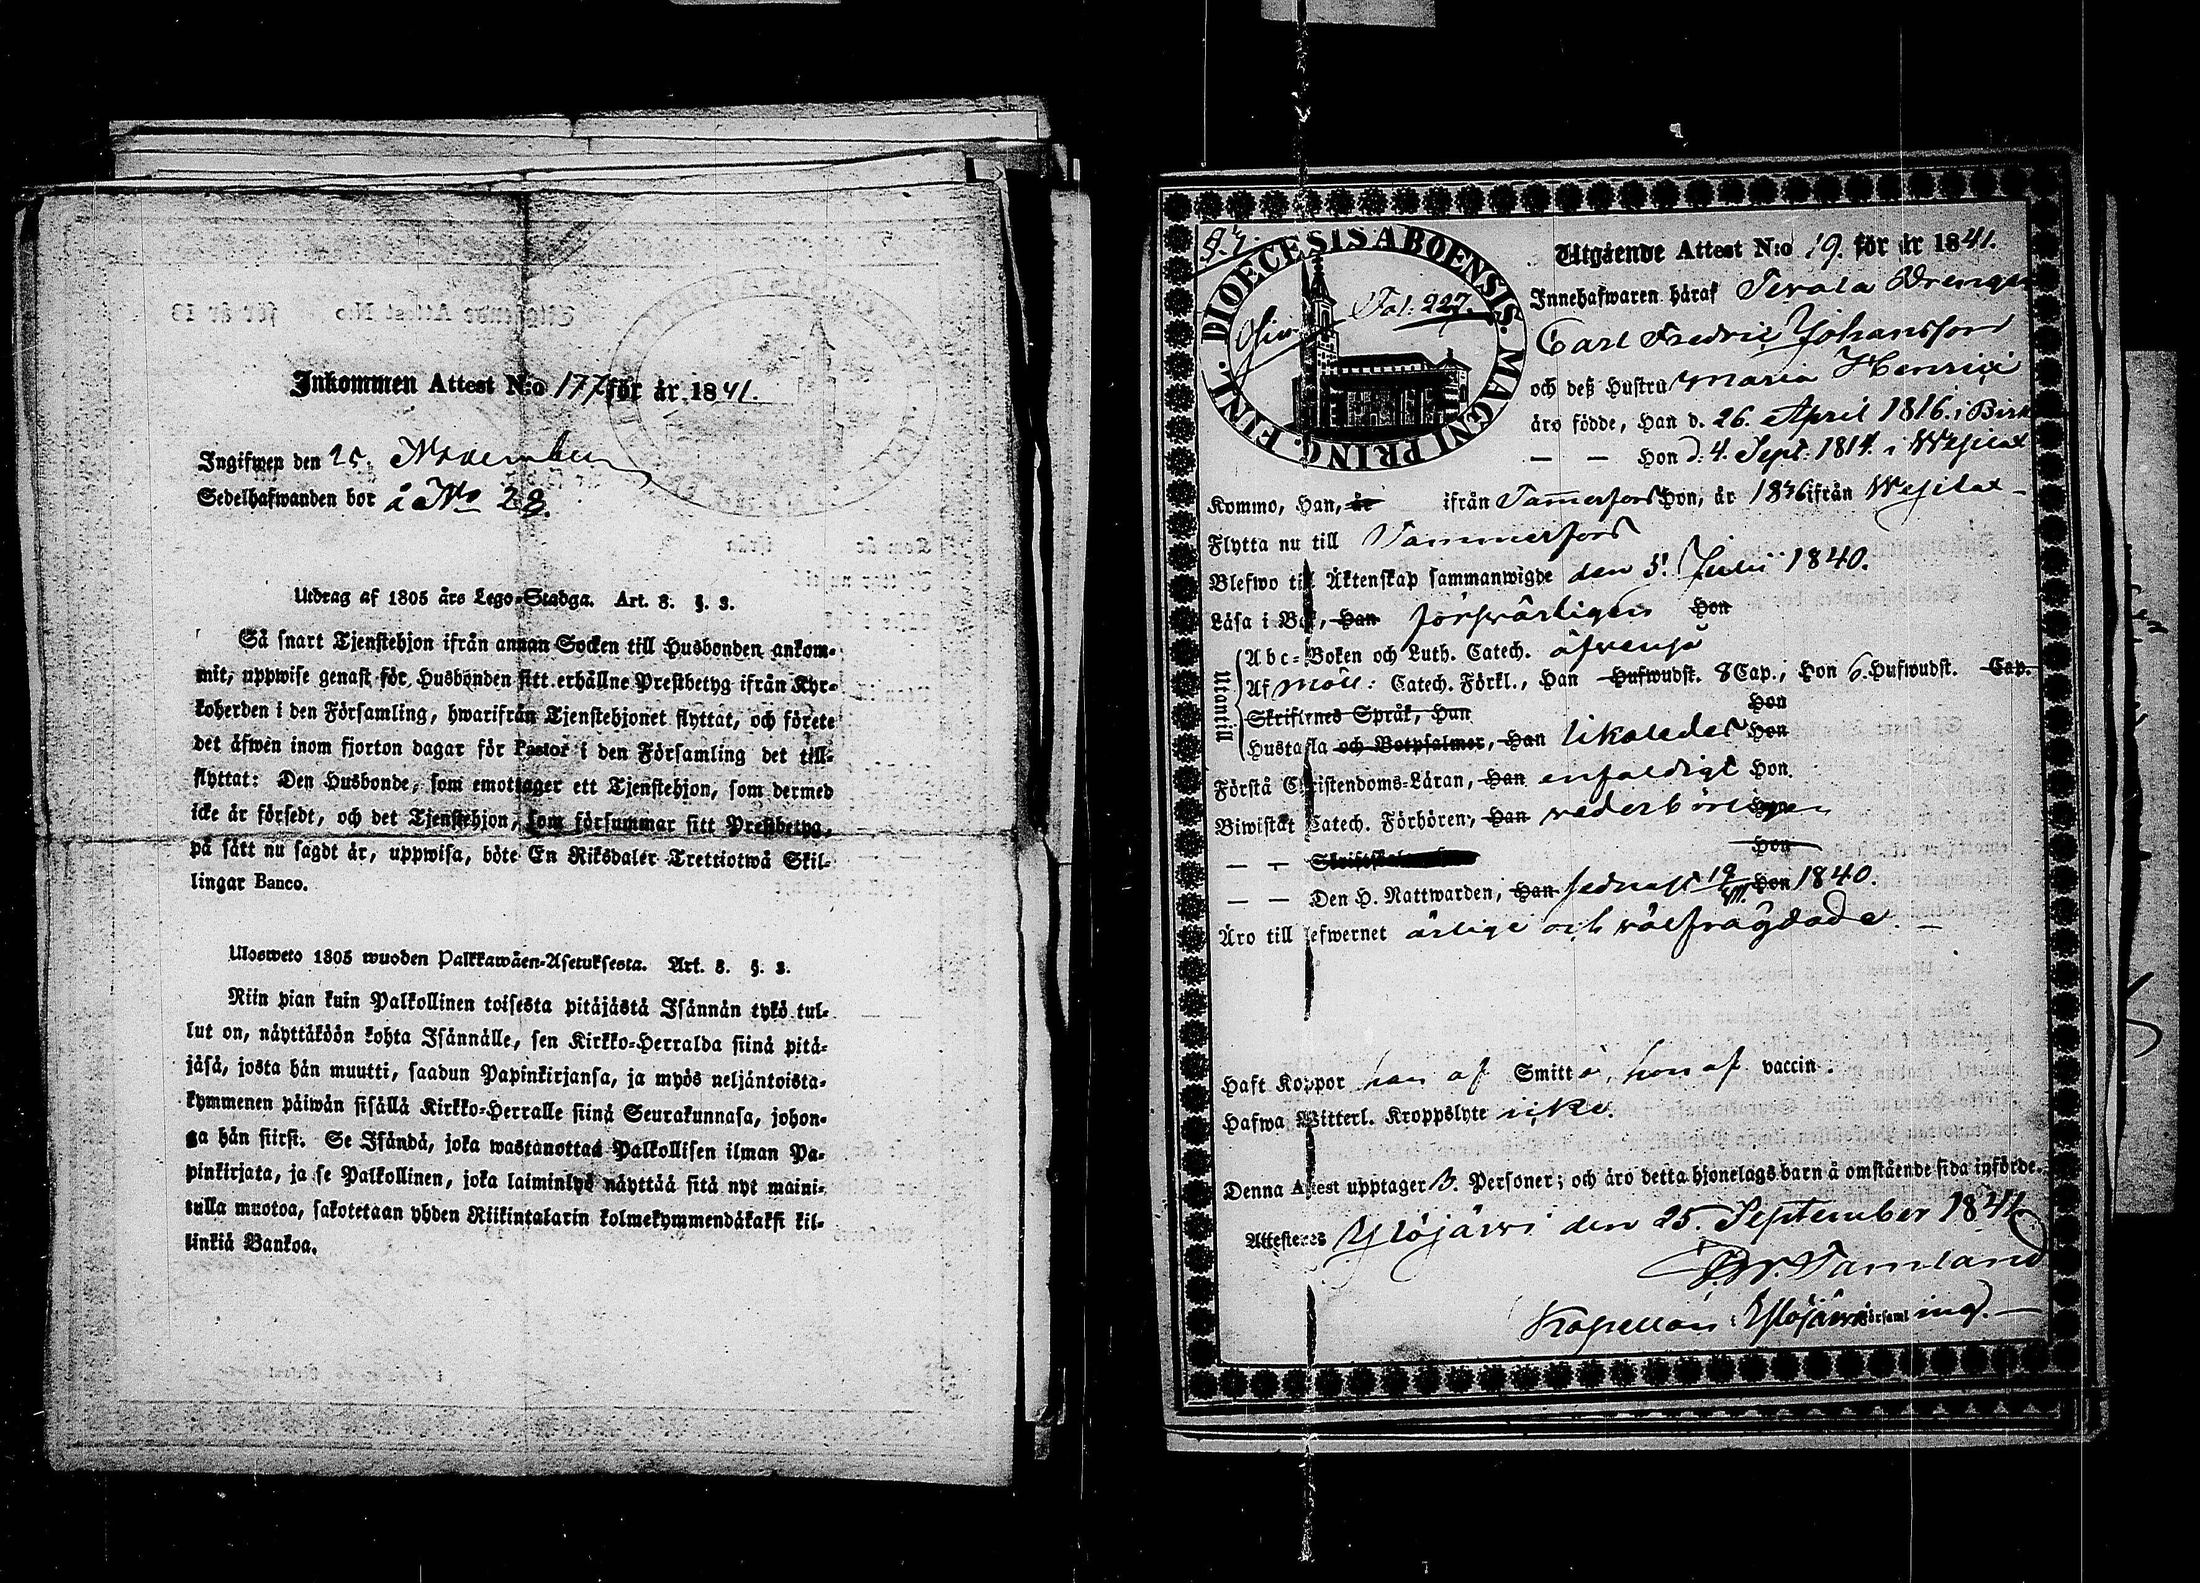 Inkommen Attest N:o 177 för år 1841.
Ingifwen den 25. November
Sedelhafwanden bor å No 28.
Utdrag af 1805 års Lego-Stadga. Art. 8. §. 3.
Så snart Tjenstehjon ifrån annan Socken till Husbonden ankom-
mit, uppwise genast för Husbonden sitt erhållne Prestbetyg ifrån Kyr-
koherden i den Församling, hwarifrån Tjenstehjonet flyttat, och förete
det äfwen inom fjorton dagar för Pastor i den Församling det till-
flyttat: Den Husbonde, som emottager ett Tjenstehjon, som dermed
icke är försedt, och det Tjenstehjon, som försummar sitt Prestbetyg,
på sätt nu sagdt är, uppwisa, böte En Riksdaler Trettiotwå Skil-
lingar Banco.
Ulosweto 1805 wuoden Palkkawäen-Asetuksesta. Art. 8. §. 3.
Niin pian kuin Palkollinen toisesta pitäjästä Isännän tykö tul-
lut on, näyttäköön kohta Isännälle, sen Kirkko-Herralda siinä pitä-
jäsä, josta hän muutti, saadun Papinkirjansa, ja myös neljäntoista-
kymmenen päiwän sisällä Kirkko-Herralle siinä Seurakunnasa, johon-
ga hän siirsi. Se Isändä, joka wastanottaa Palkollisen ilman Pa-
pinkirjata, ja se Palkollinen, joka laiminlyö näyttää sitä nyt maini-
tulla muotoa, sakotetaan yhden Riikintalarin kolmekymmendäkaksi kil-
linkiä Bankoa.
DIOECESIS ABOENSIS. MAGNI PRINC. FINL.
Fol. 227.
Utgående Attest N:o 19. för år 1841.
Innehafwaren häraf Terala Drengen
Carl Fredric Johansson
och deß Hustru Maria Henrici
äro födde, Han d. 26. April 1816. i Birk
— — Hon d. 4. Sept. 1814. i Wesilax
Kommo, Han, år ifrån Tammerfors Hon, år 1836 ifrån Wesilax –
Flytta nu till Tammerfors
Blefwo till Äktenskap sammanwigde den 5. Julii 1840.
Läsa i Bok, Han försvarligen Hon
Utantill
Abc-Boken och Luth. Catech. äfvenså
Af Möll: Catech. Förkl., Han Hufwudst. 8 Cap.; Hon 6. Hufwudst. Cap.
Skriftenes Språk, Han Hon
Hustafla och Botpsalmer, Han likaledes Hon
Förstå Christendoms-Läran, Han enfaldigt Hon
Biwistat Catech. Förhören, Han wederbörligen Hon
— — Hon
— — Den H. Nattwarden, Han sednast 19/VII. Hon 1840.
Äro till lefwernet ärlige och välfrägdade. —
Haft Koppor han af Smitta, hon af vaccin.
Hafwa Witterl. Kroppslyte icke.
Denna Attest upptager 3. Personer; och äro detta hjonelags barn å omstående sida införde.
Attesteres Ylöjärvi den 25. September 1841
Fr. Tamland
Kapellan i Ylöjärvi Församling. —